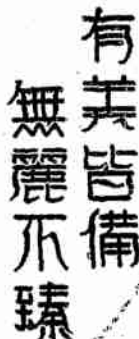 有美皆備
無麗不臻